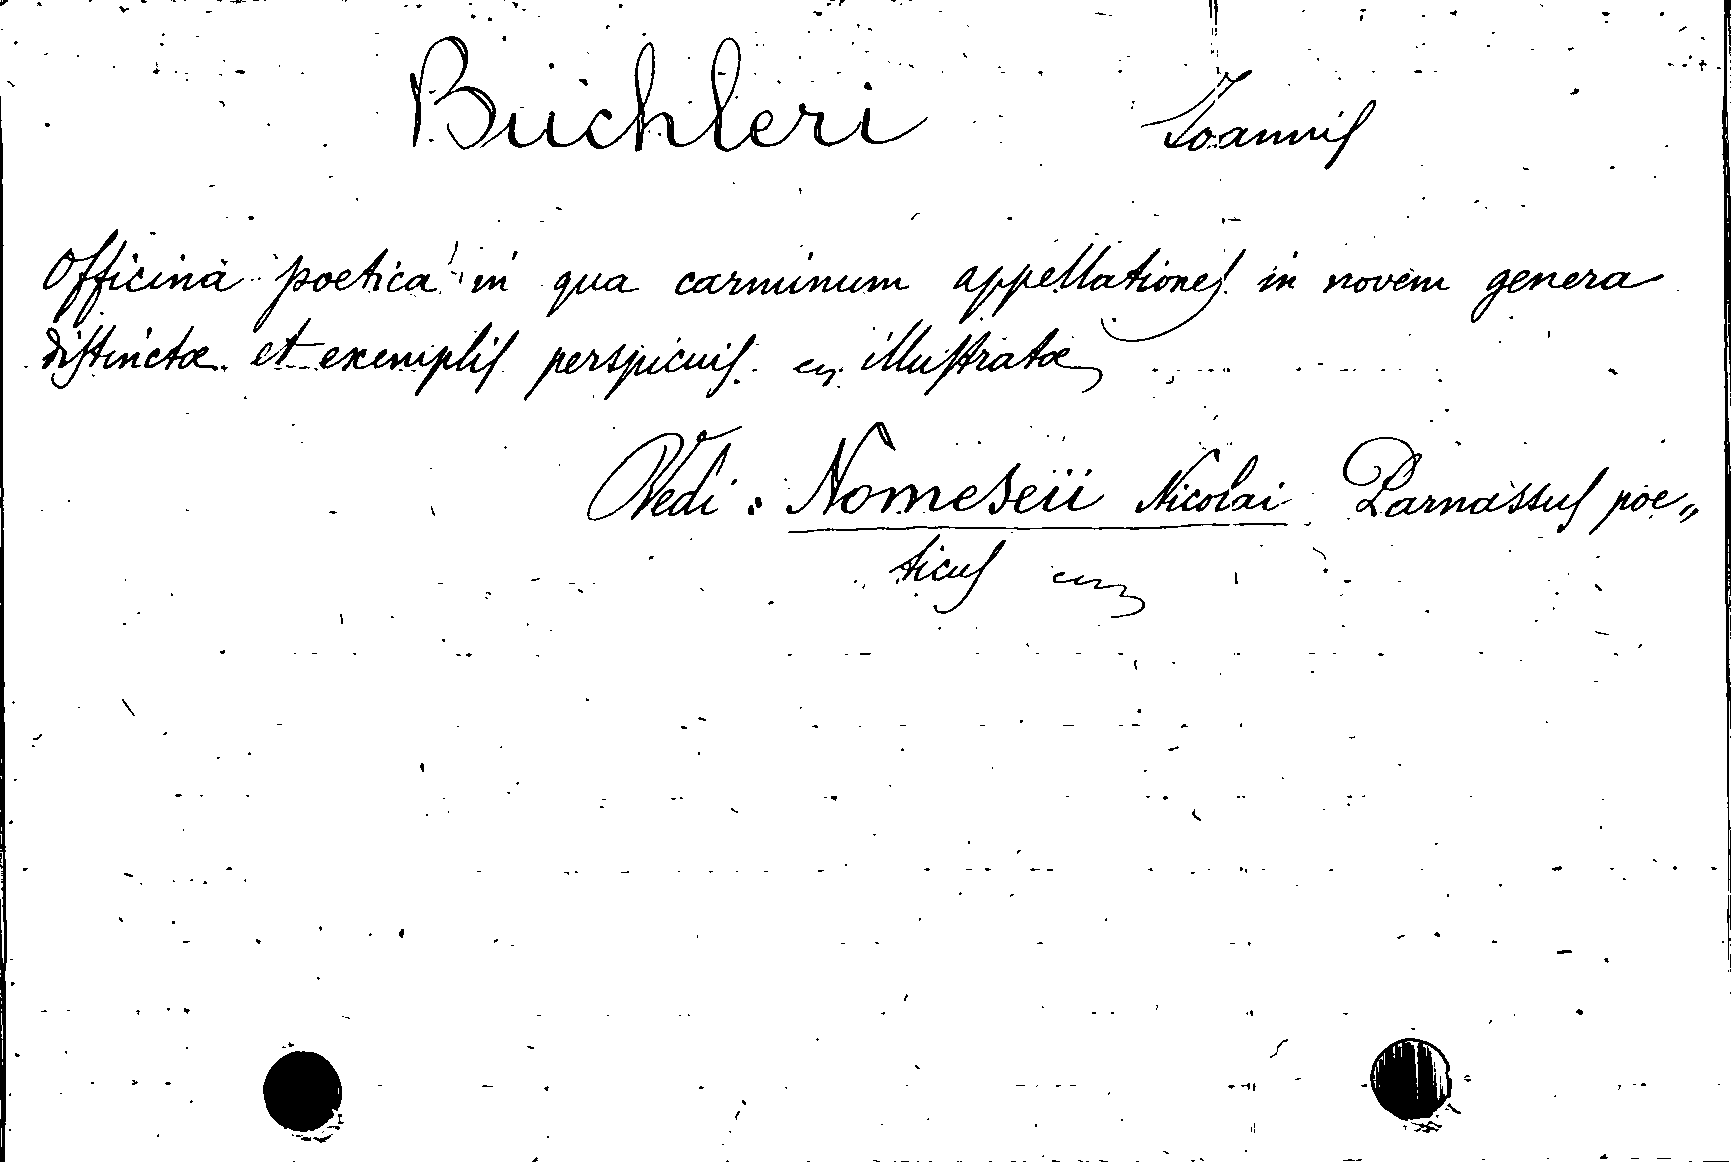 Buchleri Ioannis
Officina poetica in qua carminum appellationes in novem genera
distinctæ et exemplis perspicuis illustratæ
Vedi: Nomeseii Nicolai Parnassus poe„
ticus